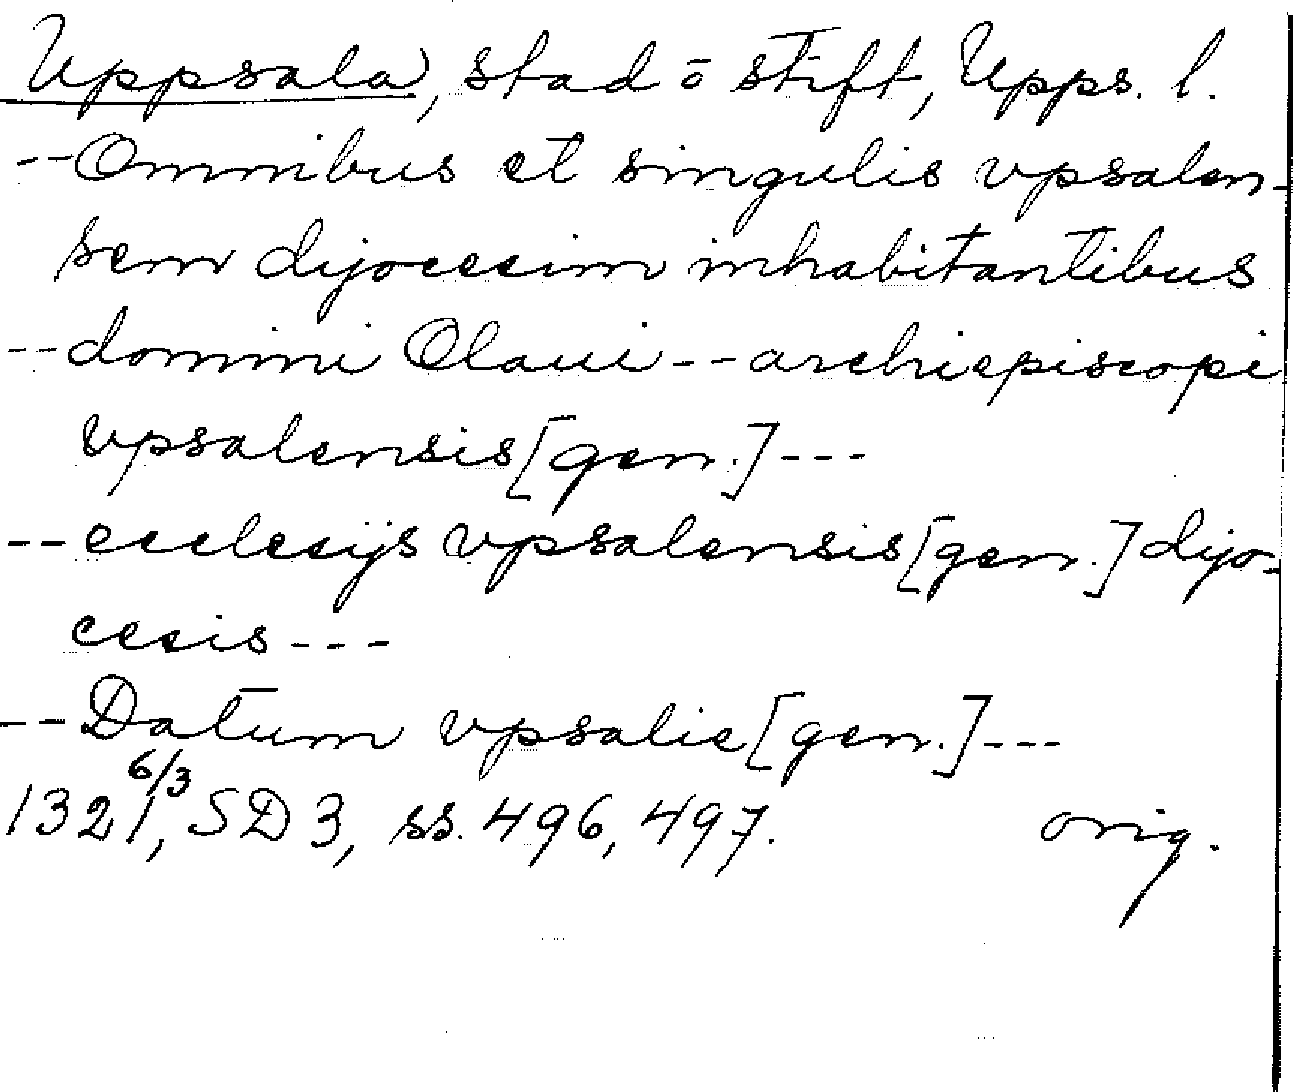 Uppsala, stad ō stift, Upps. l.
--Omnibus et singulis vpsalen-
sem dyocesim inhabitantibus
--domini Olaui--archiepiscopi
vpsalensis [gen.]---
--ecclesijs vpsalensis [gen.] dyo-
cesis---
--Datum vpsalie [gen.]---
1321 6/3, SD 3, ss. 496, 497. orig.